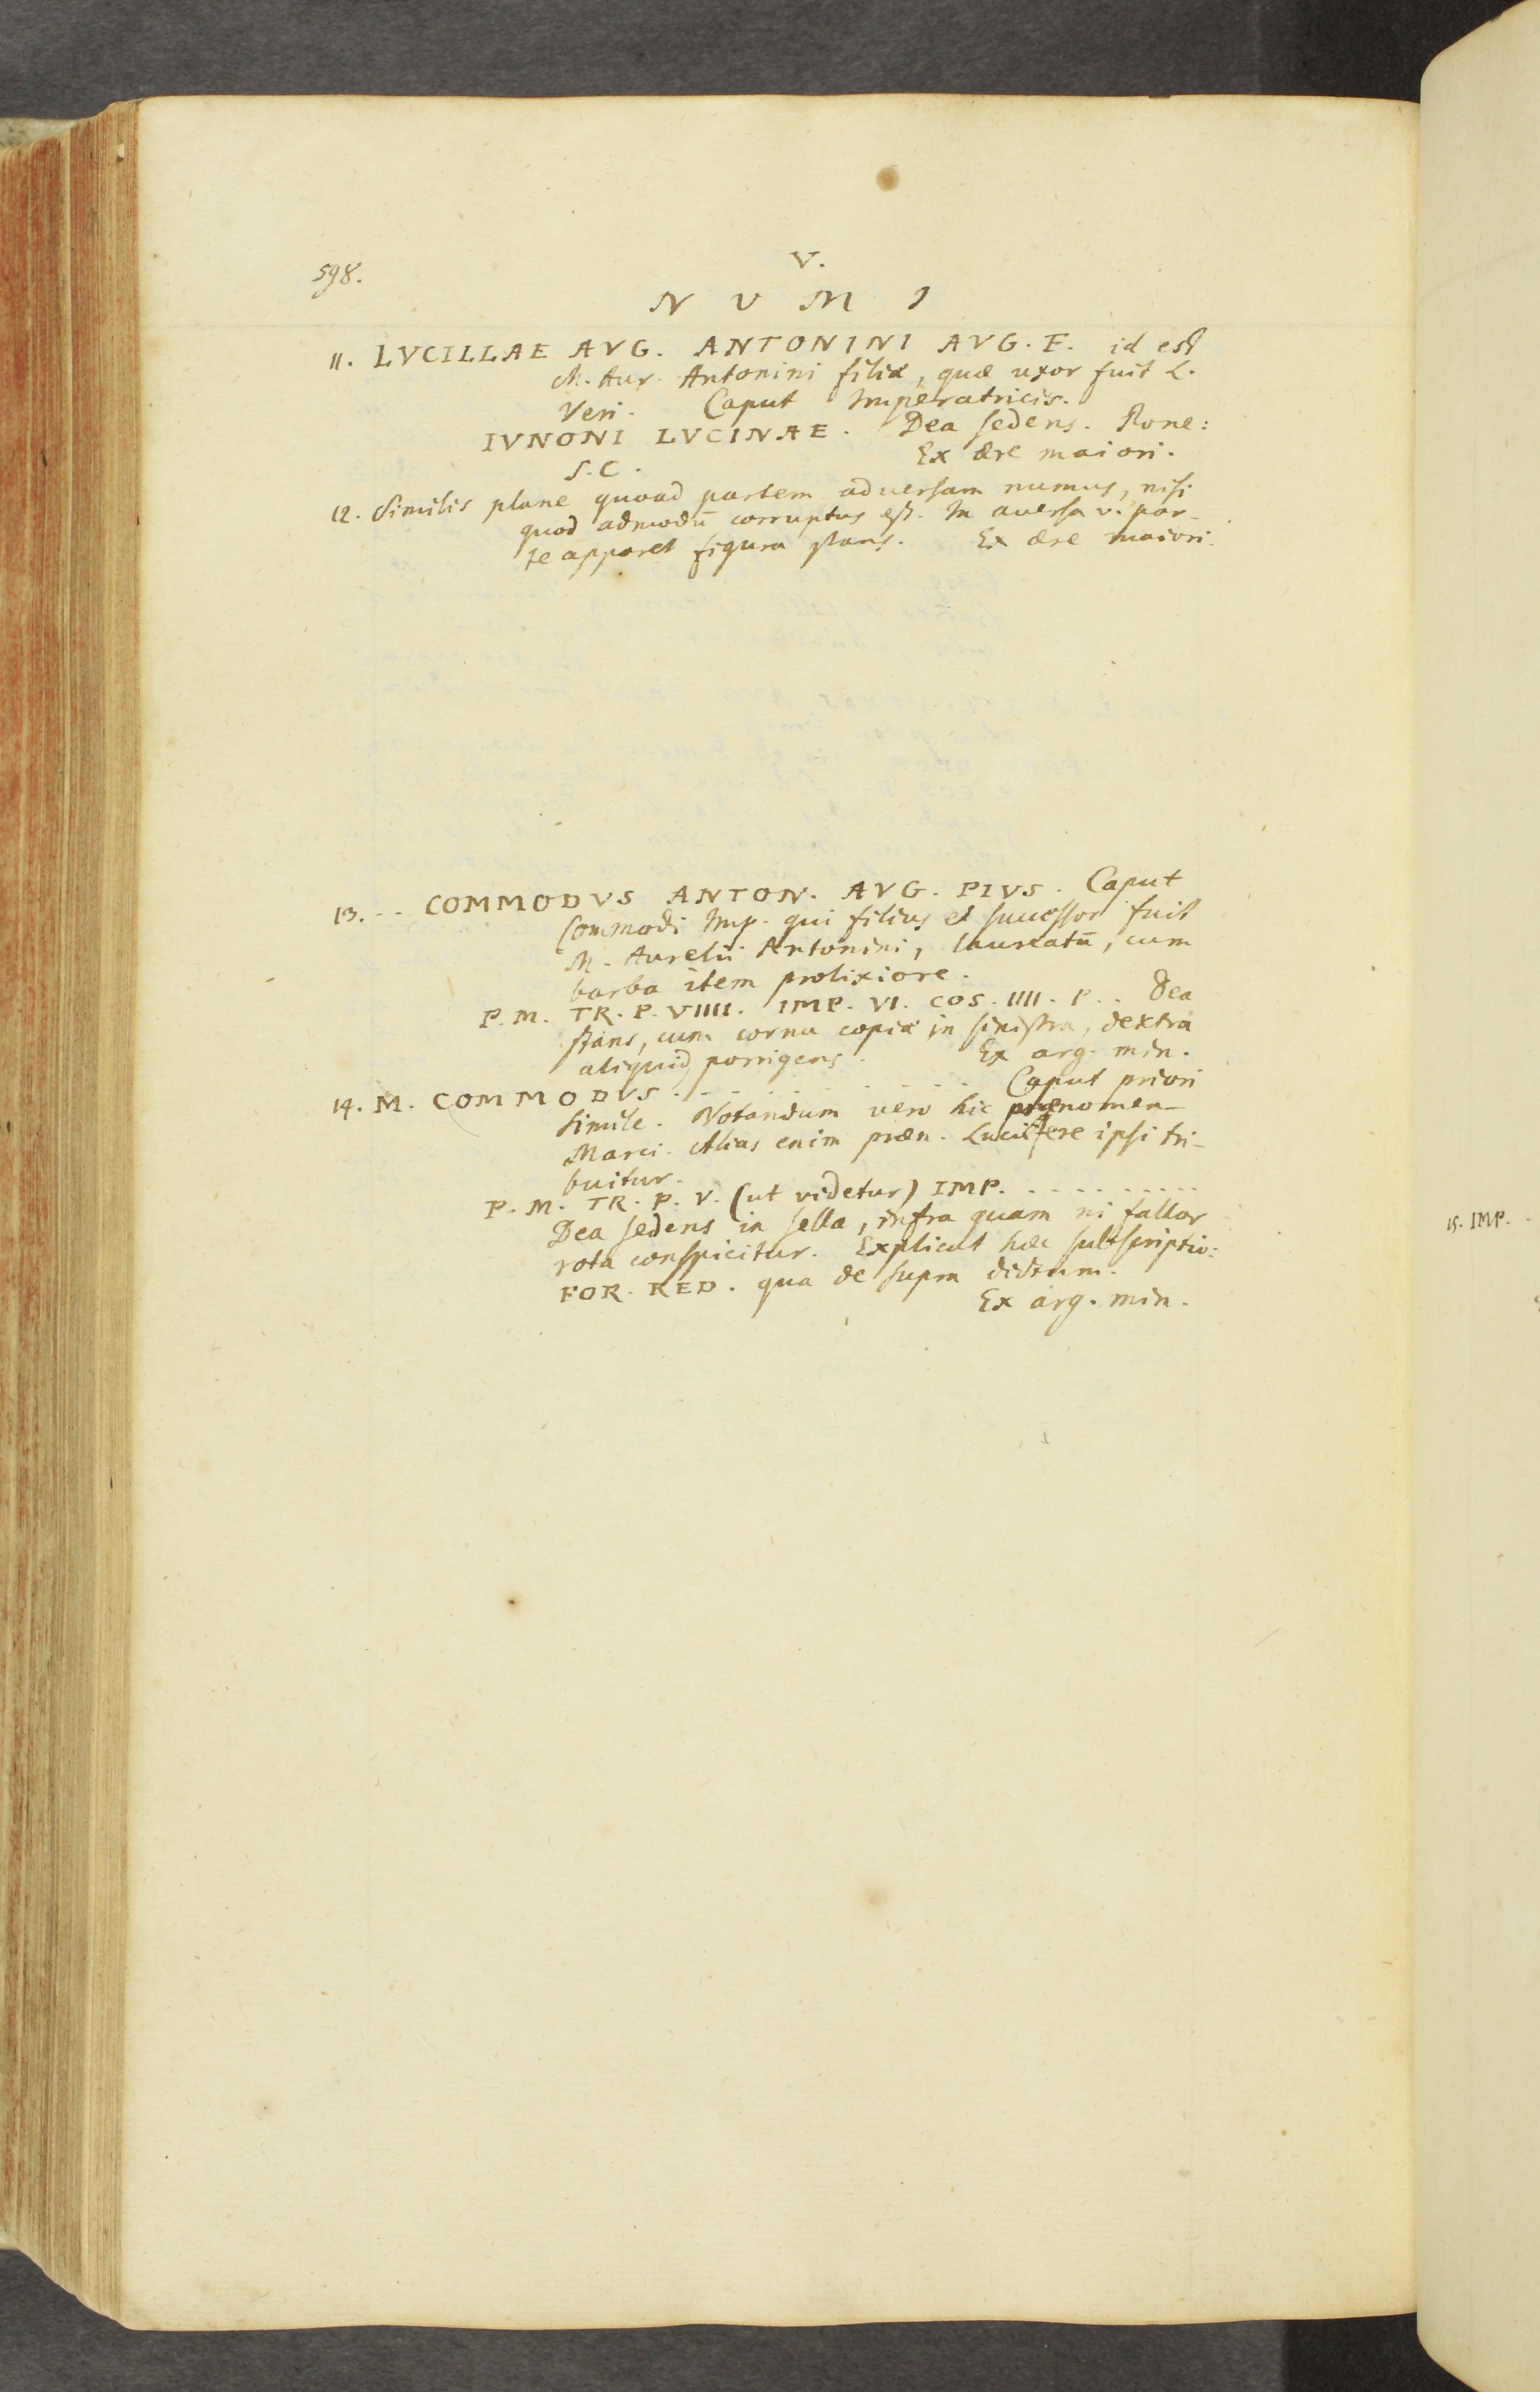 598.
V.
NUMI
11. LVCILLAE AVG. ANTONINI AVG. F. id est
M. Aur. Antonini filiæ, quæ uxor fuit L.
Veri. Caput Imperatricis.
IVNONI LVCINAE. Dea sedens. Pone:
S.C. Ex ære maiori.
12. Similis plane quoad partem adversam numus, nisi
quod admodū corruptus est. In aversa v. par-
te apparet figura stans. Ex ære maiori.
13. -- COMMODVS ANTON. AVG. PIVS. Caput
Commodi Imp. qui filius et successor fuit
M. Aurelii Antonini, laureatū, cum
barba item prolixiore.
P. M. TR. P. VIIII. IMP. VI. COS. IIII. P.. Dea
stans, cum cornu copiæ in sinistra, dextra
aliquid porrigens. Ex arg. min.
14. M. COMMODVS . . . . . . . . . Caput priori
simile. Notandum vero hic prænomen
Marci. Alias enim præn. Lucii fere ipsi tri-
buitur.
P. M. TR. P. V. (ut videtur) IMP. . . . . . . . . .
Dea sedens in sella, infra quam ni fallor
rota conspicitur. Explicat hæc subscriptio:
FOR. RED. qua de supra dictum.
Ex arg. min.
15. IMP.